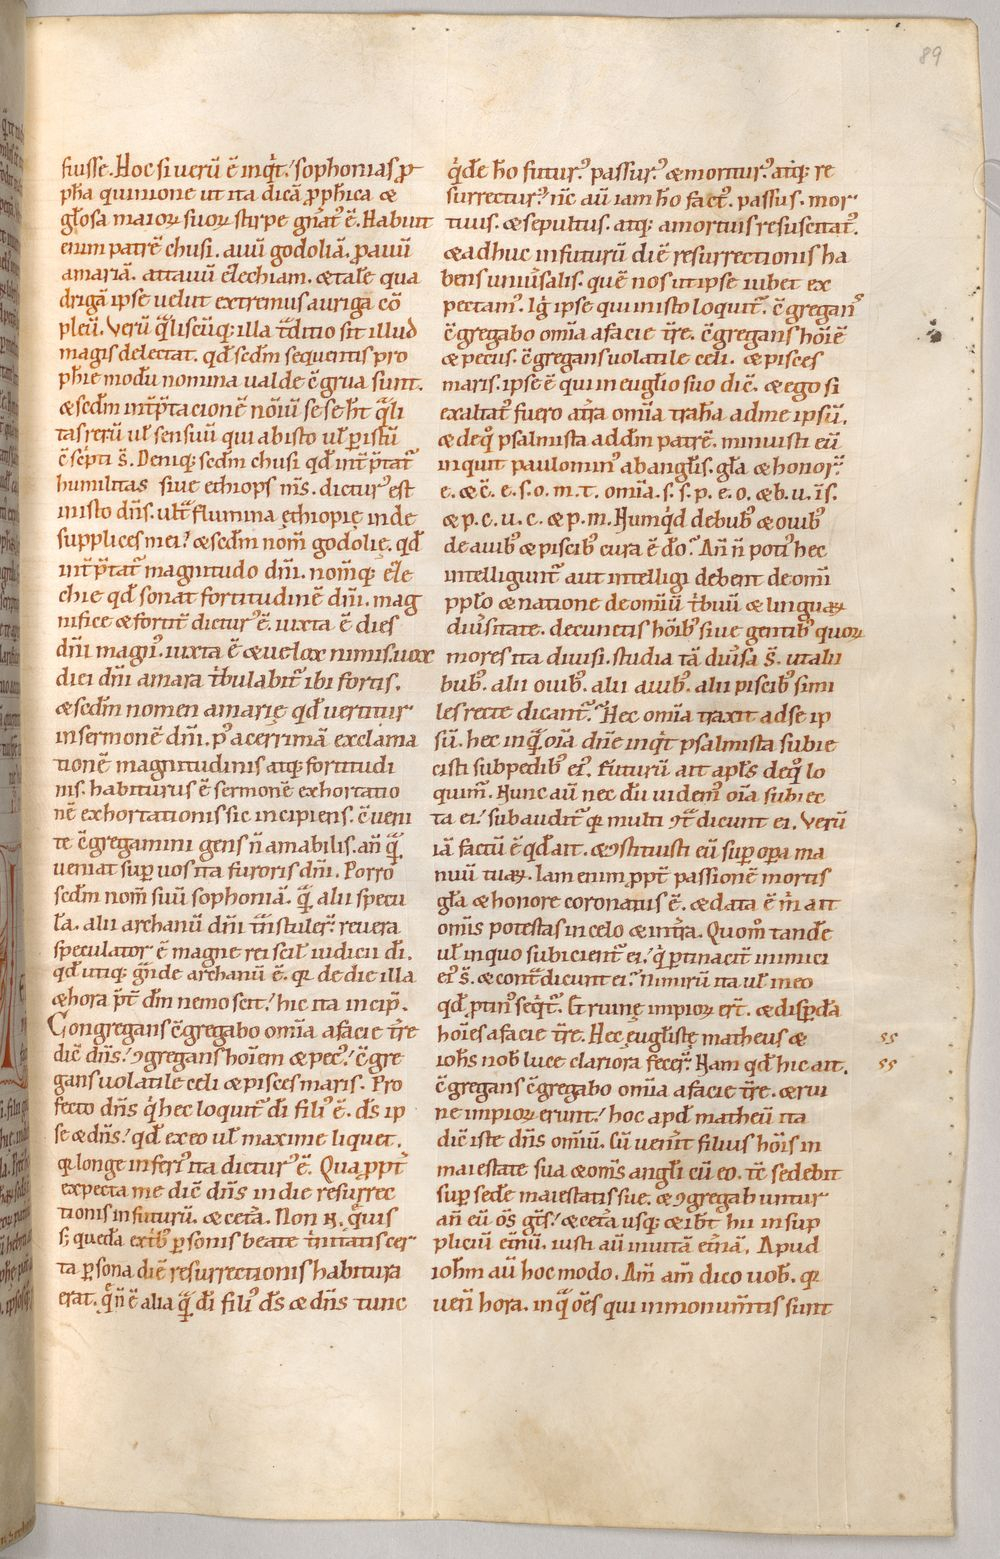 89
fuisse. Hoc si uerũ ẽ inq̇t! sophonias ꝓ
pħa quinione ut ita dicã ꝓpħica &
głosa maioꝝ suoꝝ stirpe gñat᷒ ẽ. Habuit
enim patrẽ chusi. auũ godoliã. ꝓauũ
amariã. attauũ ełechiam. & tale qua
drigã ipse uelut extremus aurigã cõ
pleuĩ. Verũ q̃liscũq; illa t̃ditio sit illud
magis delectat. qđ scđm sequentis pro
pħie modũ nomina ualde c̃grua sunt.
& scđm int̃p̃tacionẽ nõiũ se se ħt q̃li
tas rerũ uł sensuũ qui ab isto uł ꝑ istũ
c̃sc̃pti s̃. Deniq; scđm chusi qđ int̃p̃tat᷑
humilitas siue ethiops m̃s. dictur᷒ est
in isto dñs. ult̃ flumina ęthiopię inde
supplices mei? & scđm nom̃ godolię. qđ
int̃p̃tat᷑ magnitudo dñi. nom̃q; ełe
chie qđ sonat fortitudinẽ dñi. mag
nifice & fortit̃ dictur᷒ ẽ. iuxta ẽ dies
dñi magn᷒. iuxta ẽ & uelox nimis. uox
diei dñi amara t̃bulabit᷑ ibi fortis.
& scđm nomen amarię qđ uertitur
in sermonẽ dñi. p᷒ acerrimã exclama
tionẽ magnitudinis atq; fortitudi
nis. habiturus ẽ sermonẽ exhortatio
nẽ exhortationis sic incipiens. c̃ueni
te c̃gregamini gens ñ amabilis. añ q̃
ueniat suꝑ uos ira furoris dñi. Porro
scđm nom̃ suũ sophoniã. q̃ alii specu
ła. alii archanũ dñi t̃nstuler̃. reuera
speculator ẽ magne rei scił iudicii đi.
qđ utiq; g̃nde archanũ ẽ. qꝛ de die illa
& hora p̃t đm nemo scit! hic ita incip̃.
Congregans c̃gregabo omĩa a facie t̃re
dic̃ dñs! ꝯgregans hoĩem & pec᷒! c̃gre
gans uolatile celi & pisces maris. Pro
fecto dñs q̇ hec loquit᷑ đi fili᷒ ẽ. đs ip
se & dñs! qđ ex eo uł maxime liquet.
qꝛ longe inferi᷒ ita dictur᷒ ẽ. Qua ꝓpt̃
expecta me dic̃ dñs in die resurrec
tionis in futurũ. & cet̃a. Non .n. q̇uis
s; queđa ex trib᷒ ꝑsonis beate t̃nitatis cer
ta ꝑsona diẽ resurrectionis habitura
erat. q̃ñ ẽ alia q̃ đi fili᷒ đs & dñs tunc
q̇đe ħo futur᷒. passur᷒. & moritur᷒. atq; re
surrectur᷒! nc̃ aũ iam ħo fact᷒. passus. mor
tuus. & sepultus. atq; a mortuis resuscitat᷒.
& adhuc in futurũ diẽ resurrectionis ha
bens uniũsalis. quẽ nos ut ipse iubet ex
pectam᷒. Iǵ ipse qui in isto loquit᷑. c̃gregan᷒
c̃gregabo omĩa a facie t̃re. c̃gregans hoĩẽ
& pecus. c̃gregans uolatile celi. & pisces
maris. ipse ẽ qui in eugłio suo dic̃. & ego si
exaltat᷒ fuero a t̃ra omĩa traħa ad me ipsũ.
& de q᷒ psalmista ad đm patrẽ. minuisti eũ
inquit paulo min᷒ ab angłis. gła & honor̃
c. & c̃. e. s. o. m. t. omĩa. s. s. p. e. o. & b. u. ĩs.
& p. c. u. c. & p. m. Numq̇d de bub᷒ & ouib᷒
de auib᷒ & piscib᷒ cura ẽ đo? Añ ñ poti᷒ hec
intelligunt᷑ aut intelligi debent de omĩ
ppło & natione de omiũ t̃buũ & linguaꝝ
diũsitate. de cunctis hõib᷒ siue gentib᷒ quoꝝ
mores ita diuisi. studia tã diũsa s̃. ut alii
bub᷒. alii ouib᷒. alii auib᷒. alii piscib᷒ simi
les recte dicant᷑. Hec omĩa traxit ad se ip
sũ. hec inq̃ oĩa dñe inq̇t psalmista subie
cisti sub pedib᷒ ei᷒. Futurũ ait apłs de q᷒ lo
quim᷑. Nunc aũ nec dũ uidem᷒ oĩa subiec
ta ei! subaudit᷑ qꝛ multi ꝯt̃dicunt ei. Verũ
iã factũ ẽ qđ ait. & ꝯstituisti eũ suꝑ oꝑa ma
nuũ tuaꝝ. Iam enim ꝓpt̃ passionẽ mortis
gła & honore coronatus ẽ. & data ẽ m̃ ait
omĩs potestas in celo & in t̃ra. Quom᷒ tanđe
uł in quo subicient᷑ ei! q̇ ꝑtinacit̃ inimici
ei᷒ s̃. & cont̃dicunt ei? Nimirũ ita uł in eo
qđ ꝓtin᷒ seq̇t᷑. Et ruinę impioꝝ er̃t. & disꝑđa
hoĩes a facie t̃re. Hec euglistę matheus &
iohs nob᷒ luce clariora fecer̃. Nam qđ hic ait.
c̃gregans c̃gregabo omĩa a facie t̃re. & rui
ne impioꝝ erunt! hoc apđ matheũ ita
dic̃ iste dñs omiũ. Cũ uen̾it filius hoĩs in
maiestate sua & omĩs angłi eũ eo. t̃c sedebit
suꝑ seđe maiestatis sue. & ꝯgregabuntur
añ eũ õs g̃tes! & cet̃a usq; & ib̃t hii in sup
pliciũ et̃nũ. iusti aũ in uitã et̃nã. Apud
ioħm aũ hoc modo. Am̃ am̃ dico uob᷒. qꝛ
uen̾ hora. in q̃ õẽs qui in monum̃tis sunt
ss
ss